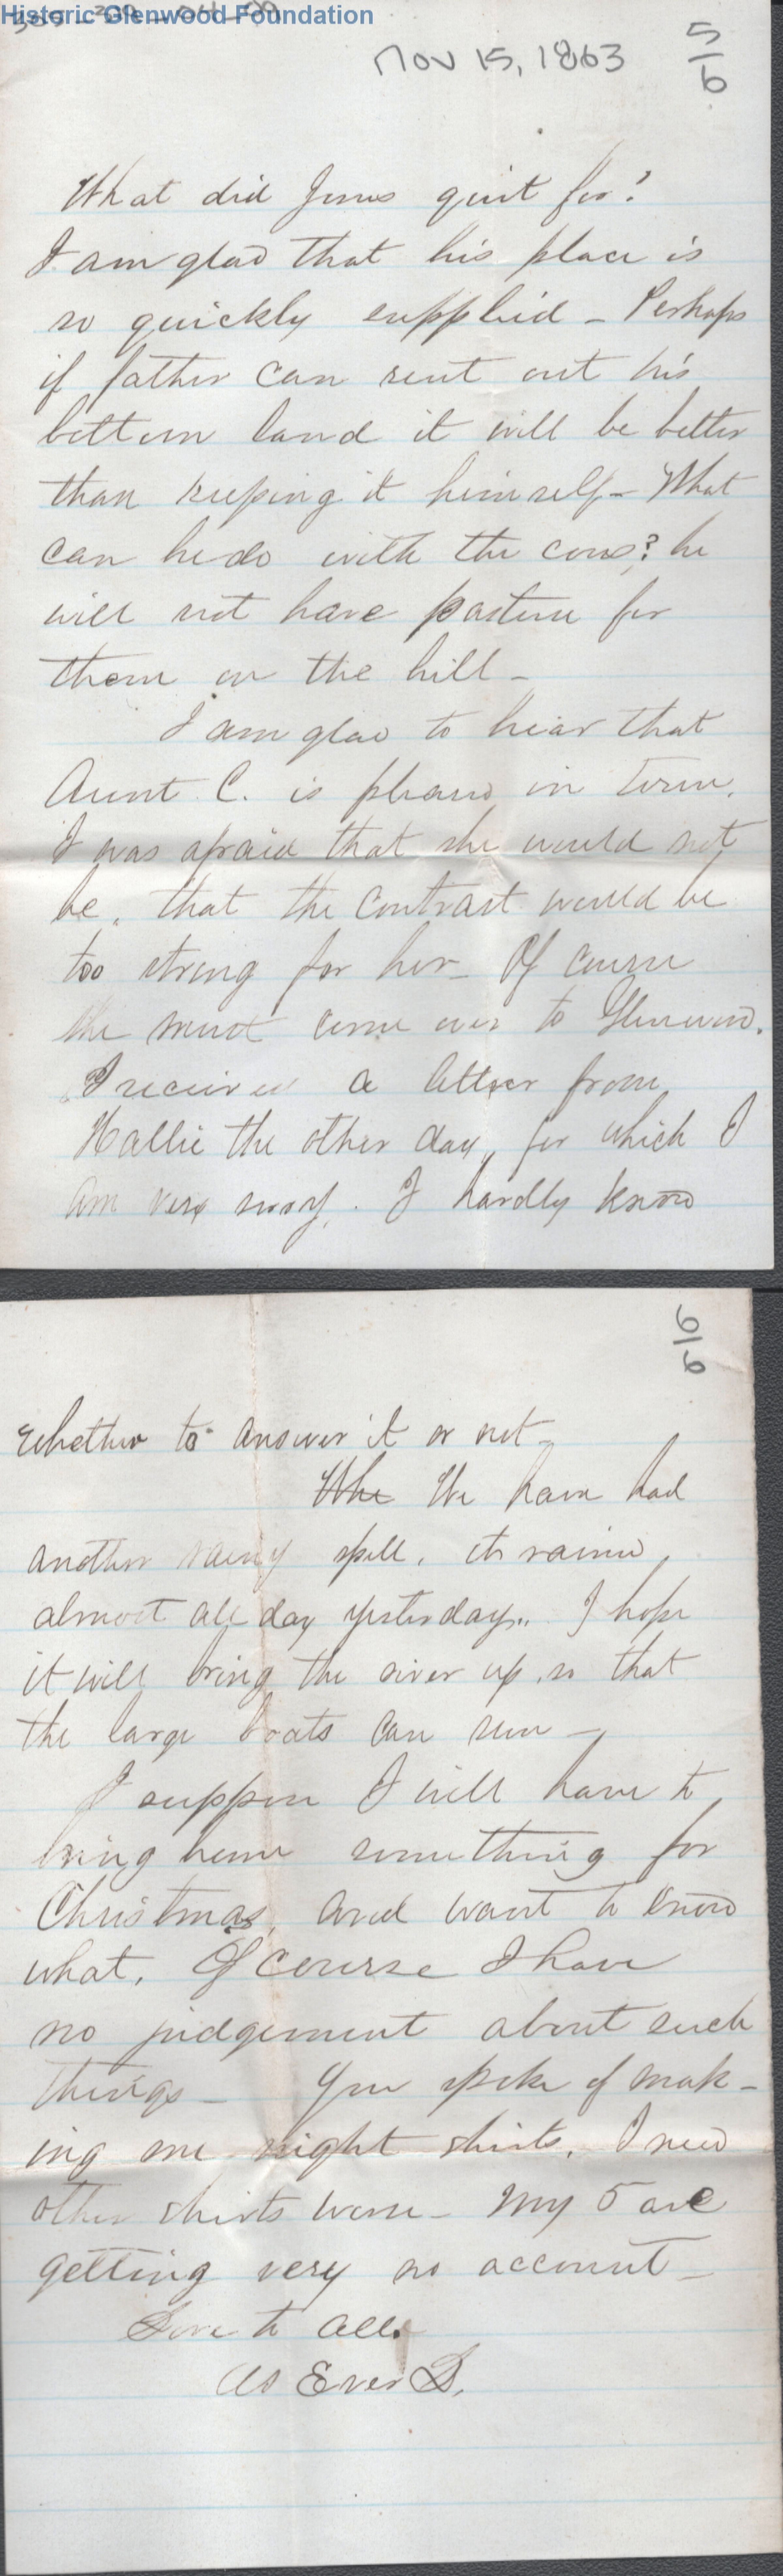 Historic Glenwood Foundation
Nov 15, 1863
5/6
What did Jones quit for?
I am glad that his place is
so quickly supplied - Perhaps
if father can rent out his
bottom land it will be better
than keeping it himself - What
can he do with the cows? he
will not have pasture for
them on the hill -
I am glad to hear that
Aunt C. is pleased in town.
I was afraid that she would not
be, that the contrast would be
too strong for her - Of course
she must come over to Glenwood.
I received a letter from
Hallie the other day, for which I
am very sorry. I hardly know
6/6
whether to answer it or not -
We have had
another rainy spell, it rained
almost all day yesterday. I hope
it will bring the river up so that
the large boats can run -
I suppose I will have to
bring home something for
Christmas, and want to know
what. Of course I have
no judgement about such
things - You spoke of mak-
ing me night shirts. I need
other shirts worse - My 5 are
getting very no account -
Love to all.
As Ever D.